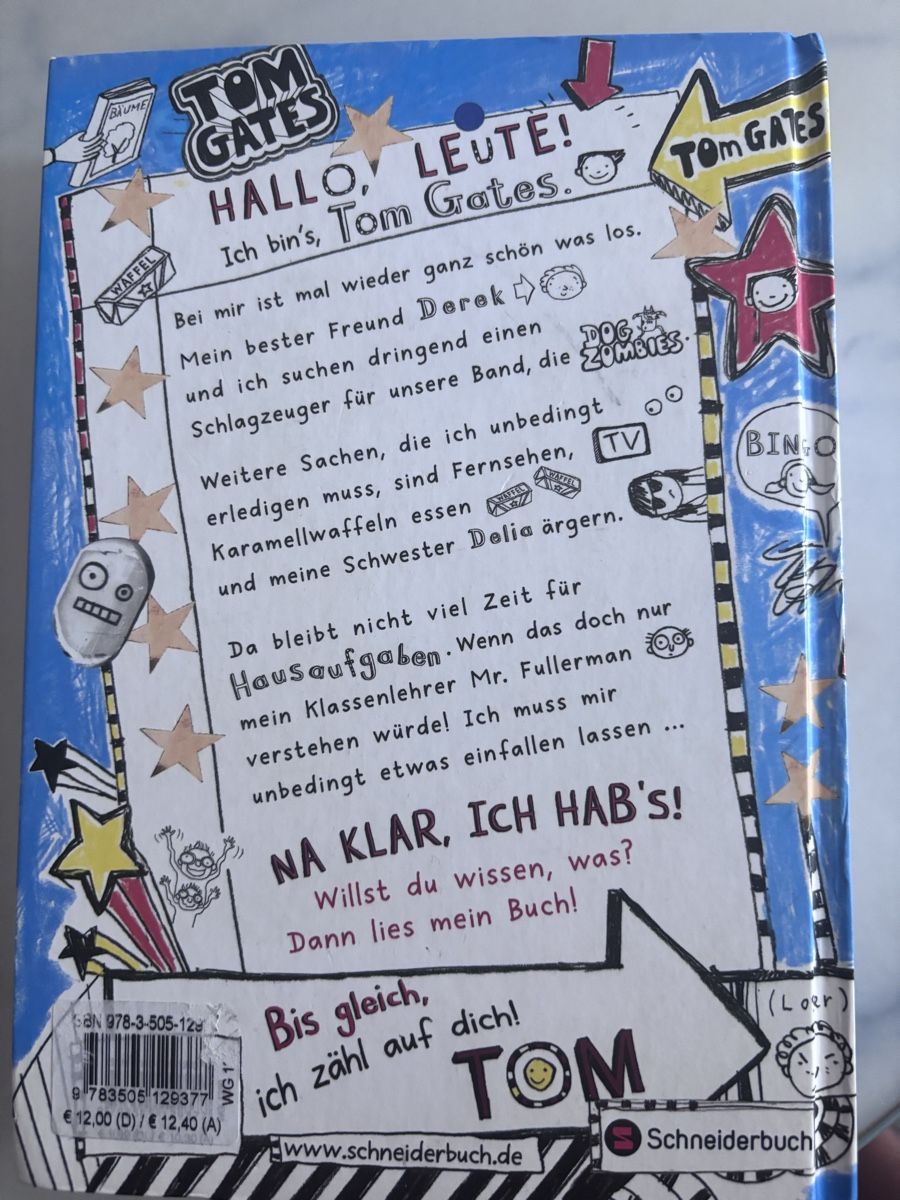 BÄUME
TOM
GATES
HALLO, LEUTE!
Ich bin's, Tom Gates.
TOm GATES
WAFFEL
Bei mir ist mal wieder ganz schön was los.
Mein bester Freund Derek
und ich suchen dringend einen
Schlagzeuger für unsere Band, die DOG ZOMBIES.
Weitere Sachen, die ich unbedingt
erledigen muss, sind Fernsehen, TV
Karamellwaffeln essen WAFFEL WAFFEL
und meine Schwester Delia ärgern.
BINGO
Da bleibt nicht viel Zeit für
Hausaufgaben. Wenn das doch nur
mein Klassenlehrer Mr. Fullerman
verstehen würde! Ich muss mir
unbedingt etwas einfallen lassen ...
NA KLAR, ICH HAB's!
Willst du wissen, was?
Dann lies mein Buch!
Bis gleich,
ich zähl auf dich!
TOM
(Loer)
ISBN 978-3-505-129
9 783505 129377
WG 1
€ 12,00 (D) / € 12,40 (A)
www.schneiderbuch.de
Schneiderbuch